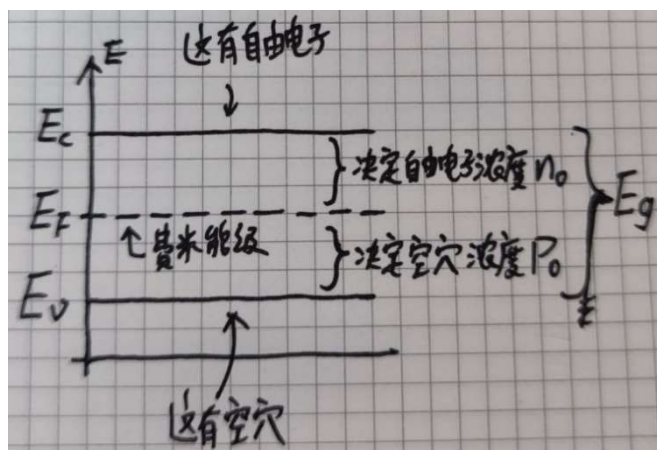 E
这有自由电子
Ec
决定自由电子浓度 n₀
EF
Eg
费米能级
决定空穴浓度 P₀
Ev
这有空穴